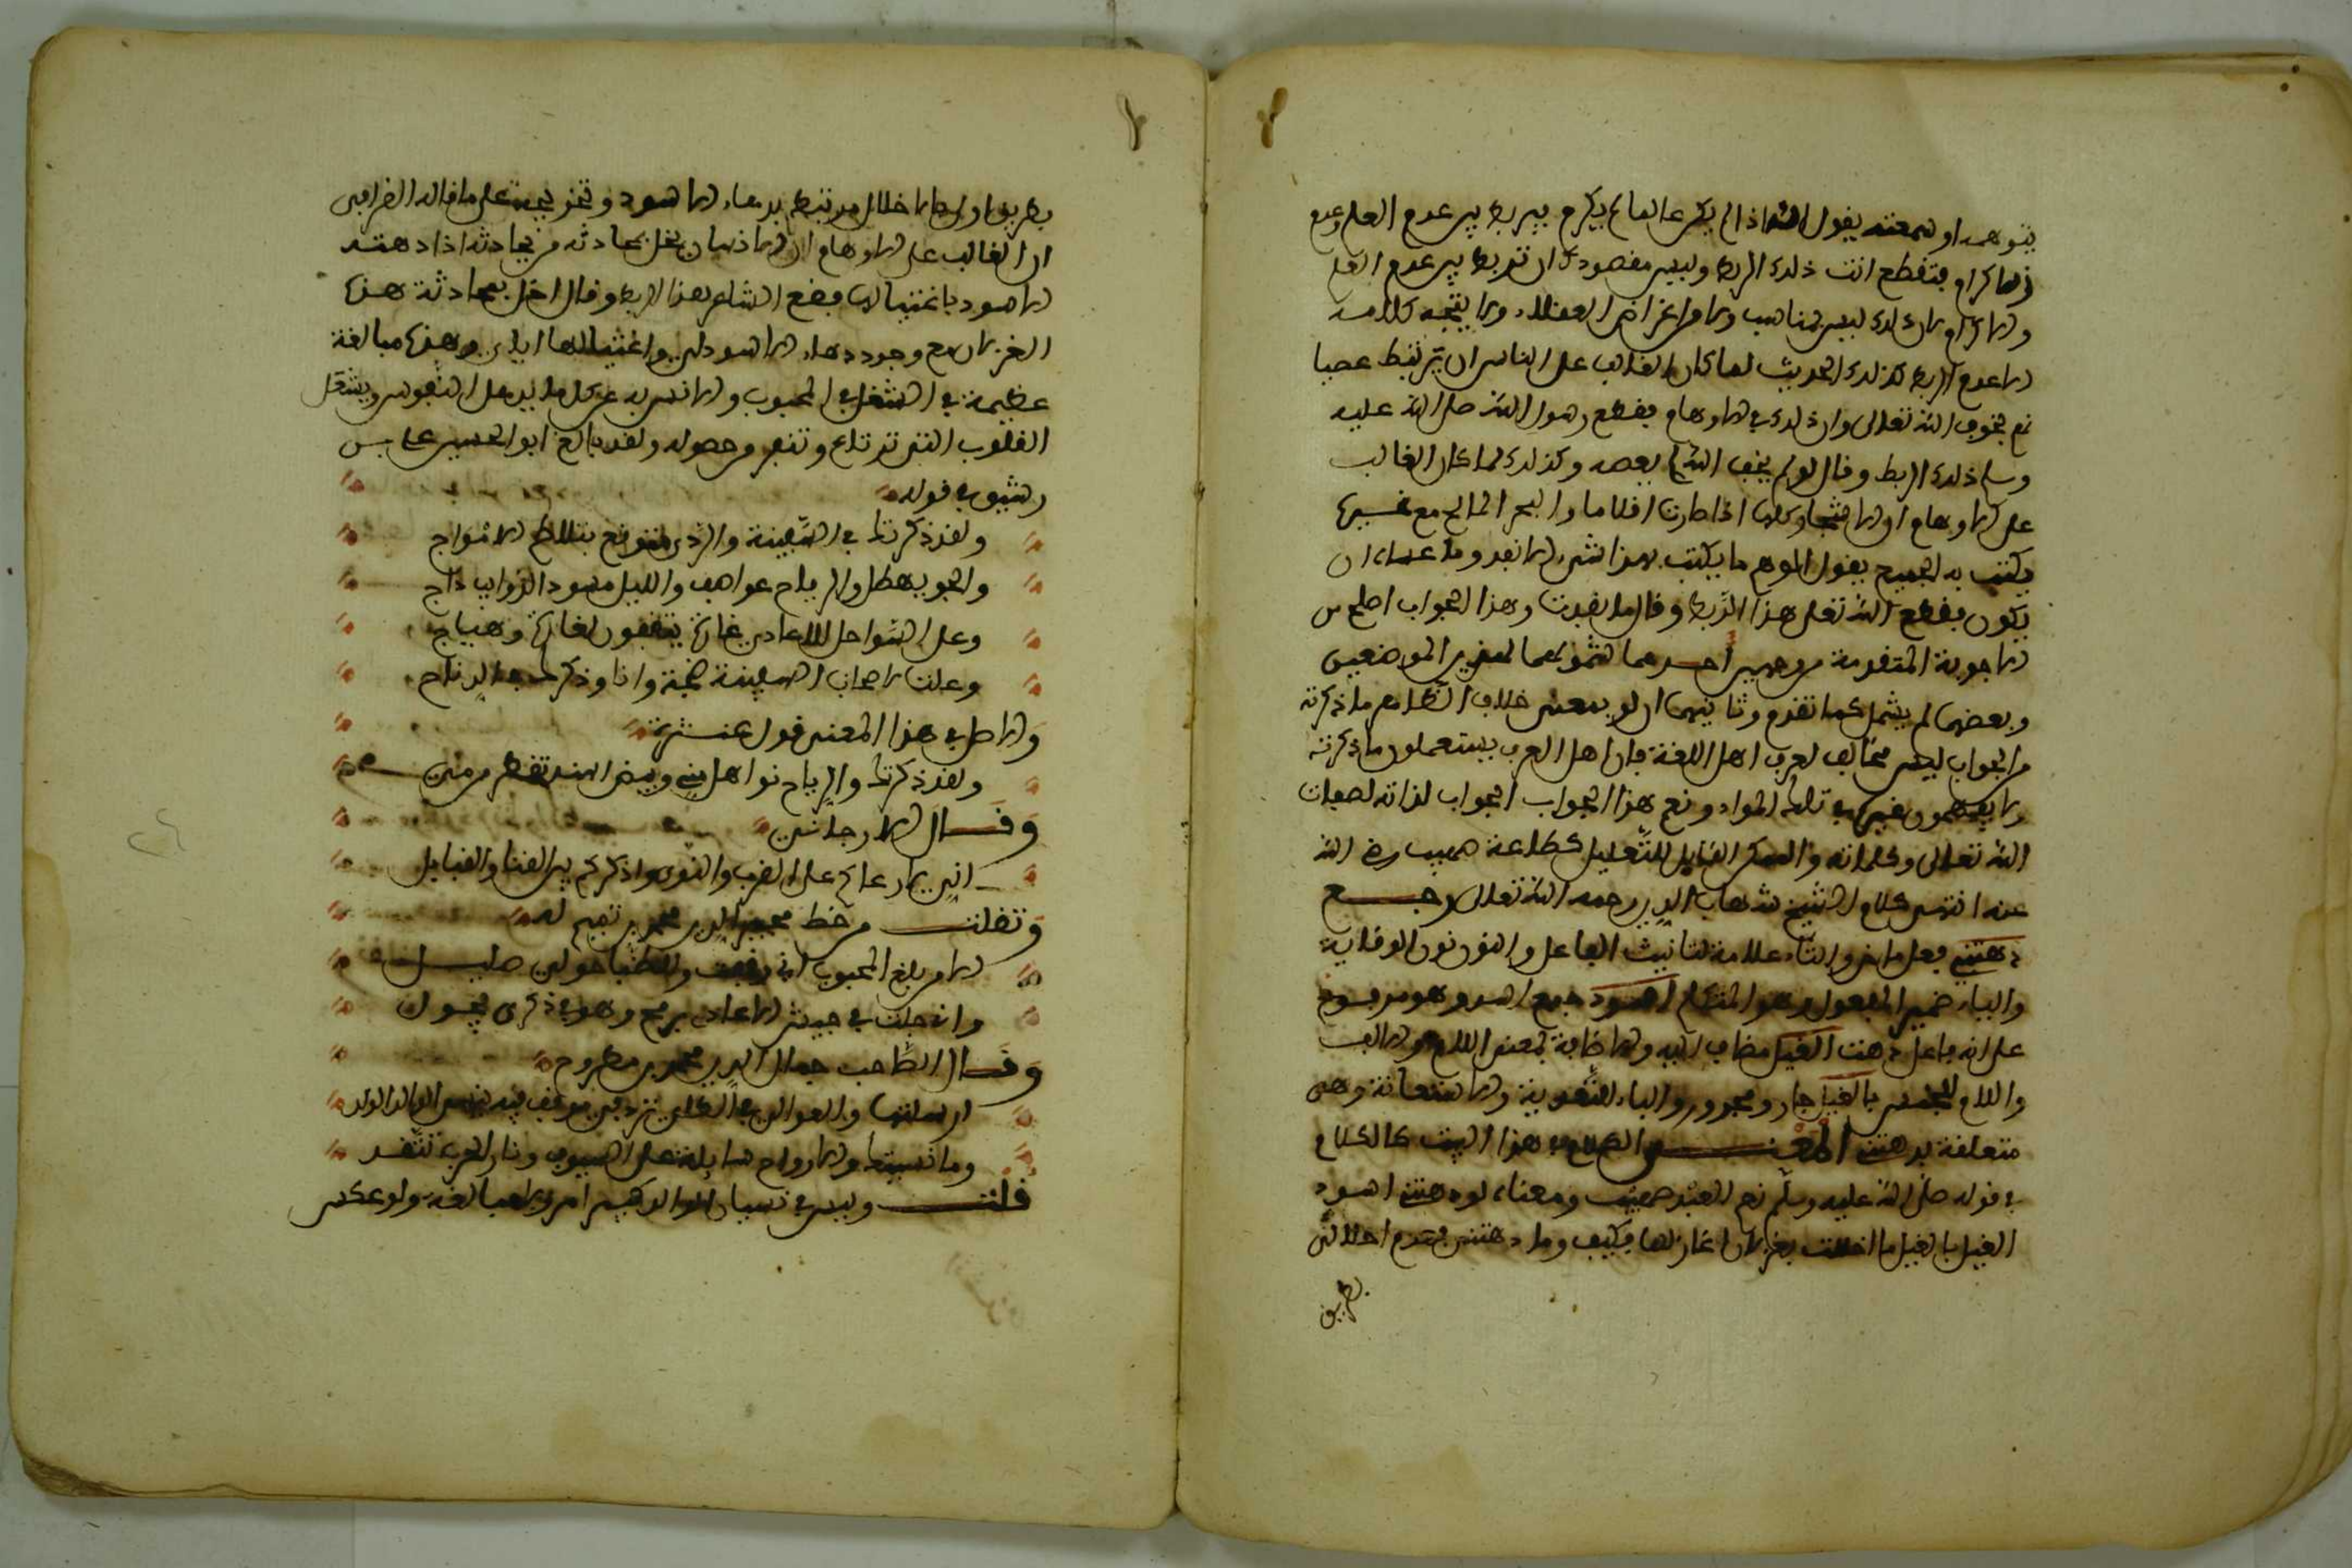 يتوهمه او سمعته يقول انه اذا لم يكن عالما لم يكرم فيربط بين عدم العلم وعدم
الاكرام فتقطع انت ذلك الربط وليس مقصودك ان تربط بين عدم العلم
والاكرام لان ذلك ليس بمناسب ولا من اغراض العقلاء ولا يتجه كلامه
الا عدم الربط كذلك الحديث لما كان الغالب على الناس ان يرتبط عصيا
نهم بخوف الله تعالى وان ذلك في الاوهام فقطع رسول الله صلى الله عليه
وسلم ذلك الربط وقال لو لم يخف الله لم يعصه وكذلك لما كان الغالب
على الاوهام ان الاشجار كلها اذا صارت اقلاما والبحر المالح مع غيره
يكتب به الجميع يقول الموهم ما يكتب بهذا شيء الا نفد وما عساه ان
يكون فقطع الله تعالى هذا الربط وقال ما نفدت وهذا الجواب اصلح من
الاجوبة المتقدمة من وجهين احدهما شموله لهذين الموضعين
وبعضها لم يشمل كما تقدم وثانيهما ان لو بمعنى خلاف الظاهر وما ذكرته
من الجواب ليس مخالف لعرف اهل اللغة فان اهل العرف يستعملون ما ذكرته
ولا يفهمون غيره في تلك المواد ونعم هذا الجواب الجواب لذاته لصفات
الله تعالى وكلماته والممكن القابل للتعليل كطاعة صهيب رضي الله
عنه انتهى كلام الشيخ شهاب الدين رحمه الله تعالى رجع
دهتني فعل ماض والتاء علامة لتانيث الفاعل والنون نون الوقاية
والياء ضمير المفعول وهو المتكلم اسود جمع اسد وهو مرفوع
على انه فاعل دهت الغيل مضاف اليه والاضافة بمعنى اللام والالف
واللام للجنس بالغيل جار ومجرور والباء للتعدية والاستعانة وهي
متعلقة بدهتني المعنى الكلام في هذا البيت كالكلام
في قوله صلى الله عليه وسلم نعم العبد صهيب ومعناه لو دهتني اسود
الغيل بالغيل ما اخللت بغزلان اغازلها فكيف وما دهتني فعدم اخلالي
بطريق
بطريق اولى والاخلال مرتبط بدهاء الاسود وتخريجه على ما قاله القرافي
ان الغالب على الاوهام ان الانسان يخل بمحادثة من يحادثه اذا دهته
الاسود باغتيالها فقطع الشاعر هذا الربط وقال اخل بمحادثة هذه
الغزلان مع وجود دهاء الاسود لي واغتيالها اياي وهذه مبالغة
عظيمة في الشغل في المحبوب والانس به عن كل ما يذهل النفوس ويشغل
القلوب التي ترتاع وتنفر من حصوله ولقد بالغ ابو الحسين علي بن
رشيق في قوله
ولقد ذكرتك في السفينة والردى متوقع بتلاطم الامواج
والجو يهطل والرياح عواصف والليل مسود الذوايب داج
وعلى السواحل للاعادي غارة يتوقعون لغارة وهياج
وعلت لاصحاب السفينة ضجة وانا وذكرك في الذ تناج
والاصل في هذا المعنى قول عنترة
ولقد ذكرتك والرماح نواهل مني وبيض الهند تقطر من دمي
وقال الارجاني
اني لارعاكم على القرب والنوى واذكركم بين القنا والقنابل
ونقلت من خط مجير الدين محمد بن تميم له
الا من يبلغ المحبوب اني وقفت وللظبا حولي صليل
واني جلت في جيش الاعادي برمحي وهو في ذكرى يجول
وقال الصاحب جمال الدين محمد بن مطروح
ارسلتها والعوالي في الطلى ترد في موقف فيه ينسى الوالد الولد
وما نسيتك والارواح سايلة على السيوف ونار الحرب تتقد
قلت وليس في نسيان الوالد كبير امر ولا مبالغة ولو عكس